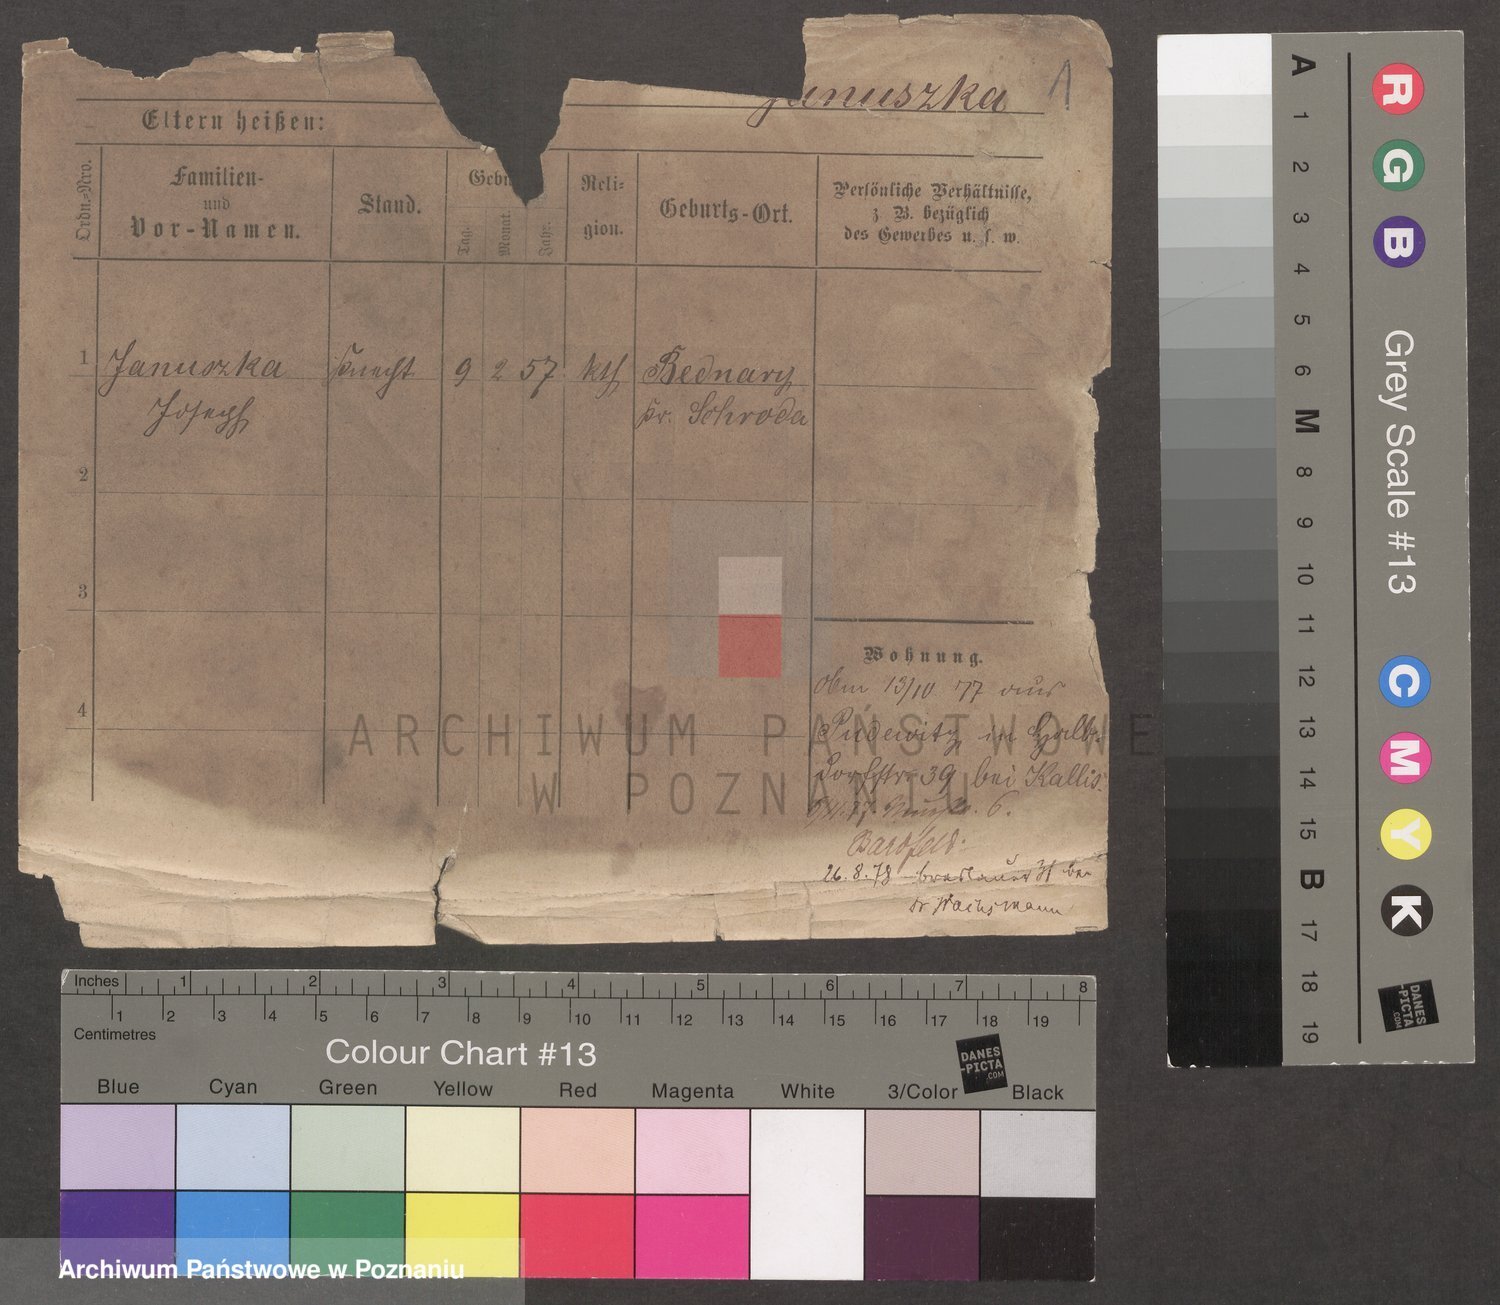 Januszka 1
Eltern heißen:
Ordn.=Nro.
Familien-
und
Vor-Namen.
Stand.
Gebu
Tag.
Monat.
Jahr.
Reli=
gion.
Geburts-Ort.
Persönliche Verhältnisse,
z. B. bezüglich
des Gewerbes u. s. w.
1 Januszka Knecht 9 2 57 kth Bednary
Joseph Kr. Schroda
2
3
4
Wohnung.
13/10 77 aus
Pudewitz in Halb
dorfstr. 39 bei Kallis
6.
26.8.78 breslauer 31 bei
Dr Wachsmann
ARCHIWUM PAŃSTWOWE
W POZNANIU
A 1 2 3 4 5 6 M 8 9 10 11 12 13 14 15 B 17 18 19
R G B
Grey Scale #13
C M Y K
DANES
-PICTA
.COM
Inches 1 2 3 4 5 6 7 8
1 2 3 4 5 6 7 8 9 10 11 12 13 14 15 16 17 18 19
Centimetres
Colour Chart #13
DANES
-PICTA
.COM
Blue Cyan Green Yellow Red Magenta White 3/Color Black
Archiwum Państwowe w Poznaniu